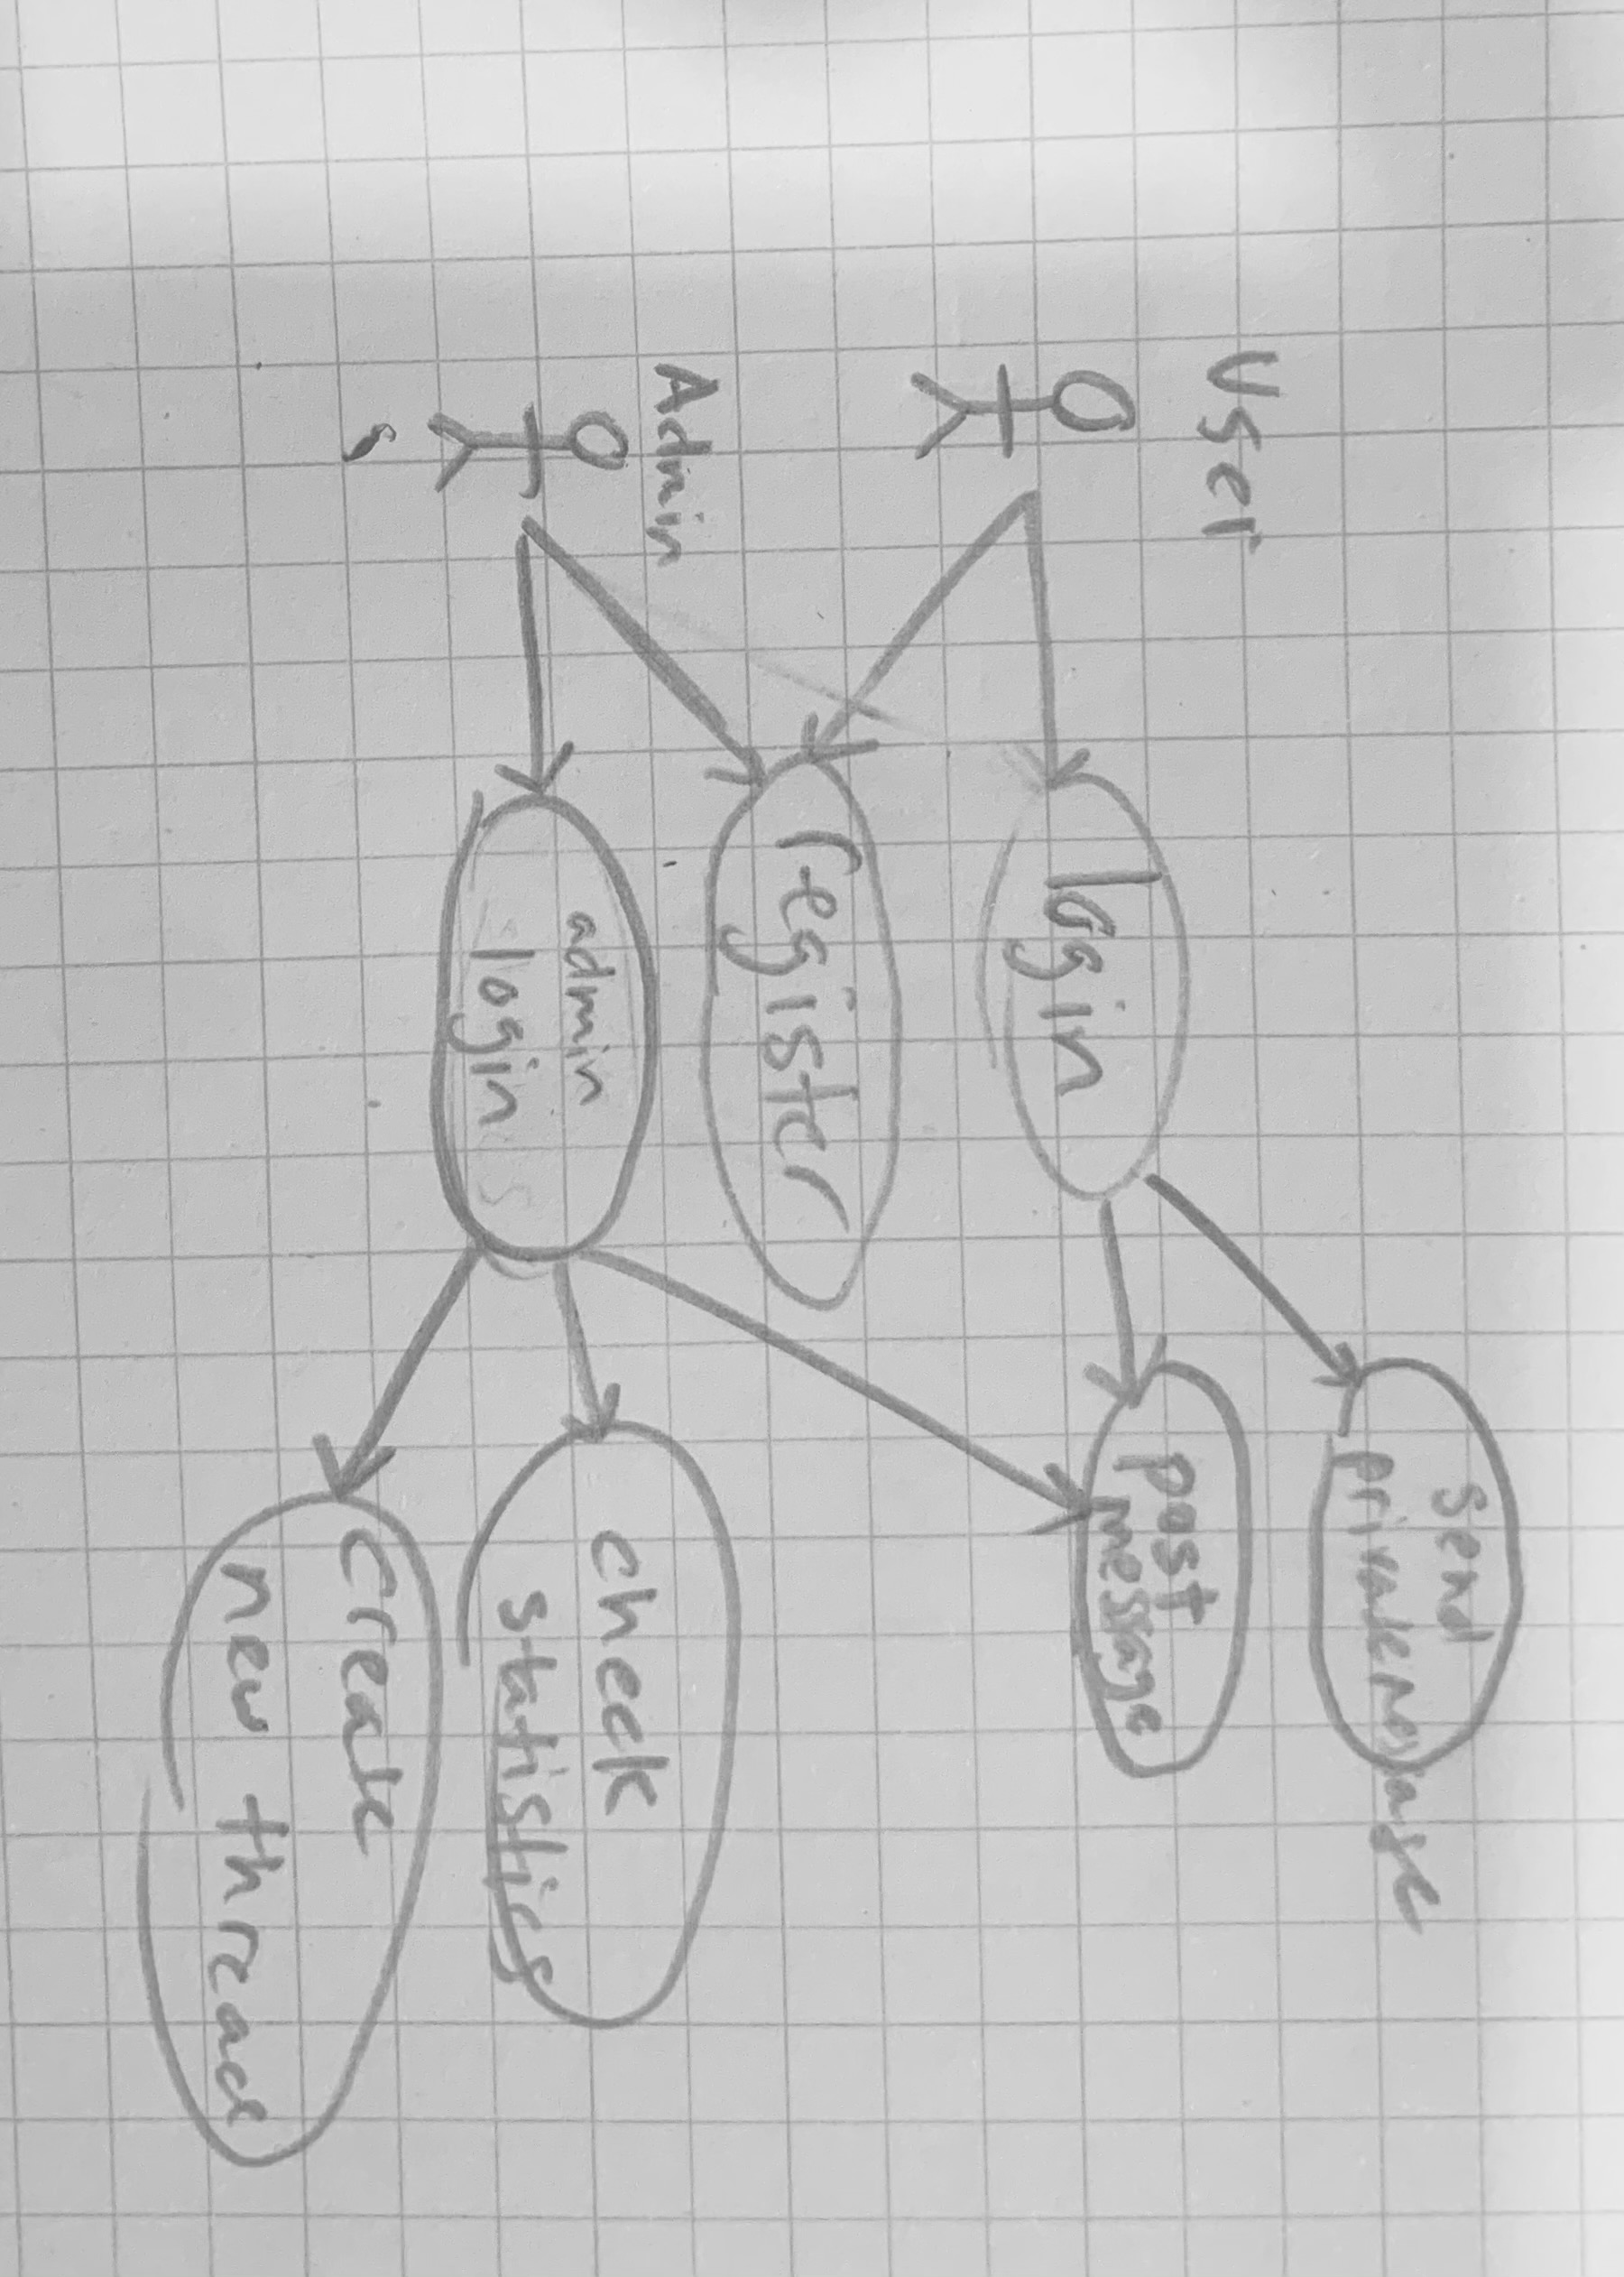 User
Admin
login
register
admin
login
send
private
post
message
check
statistics
create
new thread